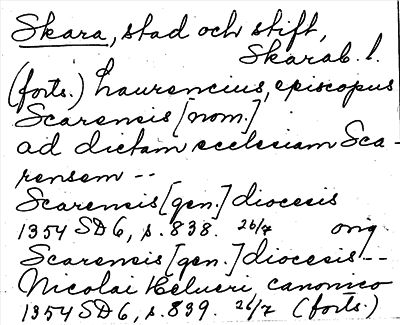 Skara, stad och stift,
Skarab. l.
(forts.) Laurencius, episcopus
Scarensis [nom.]
ad dictam ecclesiam Sca-
rensem --
Scarensis [gen.] diocesis
1354 SD 6, s. 838. 26/7 orig
Scarensis [gen.] diocesis --
Nicolai Helueri, canonico
1354 SD 6, s. 839. 26/7 (forts.)